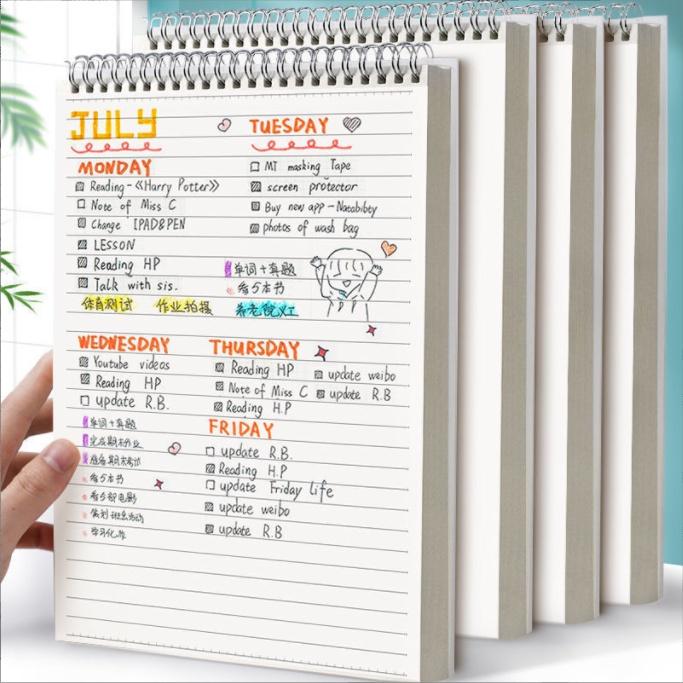 JULY
MONDAY
Reading-《Harry Potter》
Note of Miss C
Change IPAD&PEN
LESSON
Reading HP
Talk with sis.
体育测试 作业拍摄 养老院义工
TUESDAY
MT masking Tape
screen protector
Buy new app - Notability
photos of wash bag
单词+真题
看5本书
WEDNESDAY
Youtube videos
Reading HP
update R.B.
单词+真题
完成期末作业
准备期末考试
看5本书
看5部电影
策划班级活动
学习化妆
THURSDAY
Reading HP update weibo
Note of Miss C update R.B
Reading H.P
FRIDAY
update R.B.
Reading H.P
update Friday life
update weibo
update R.B